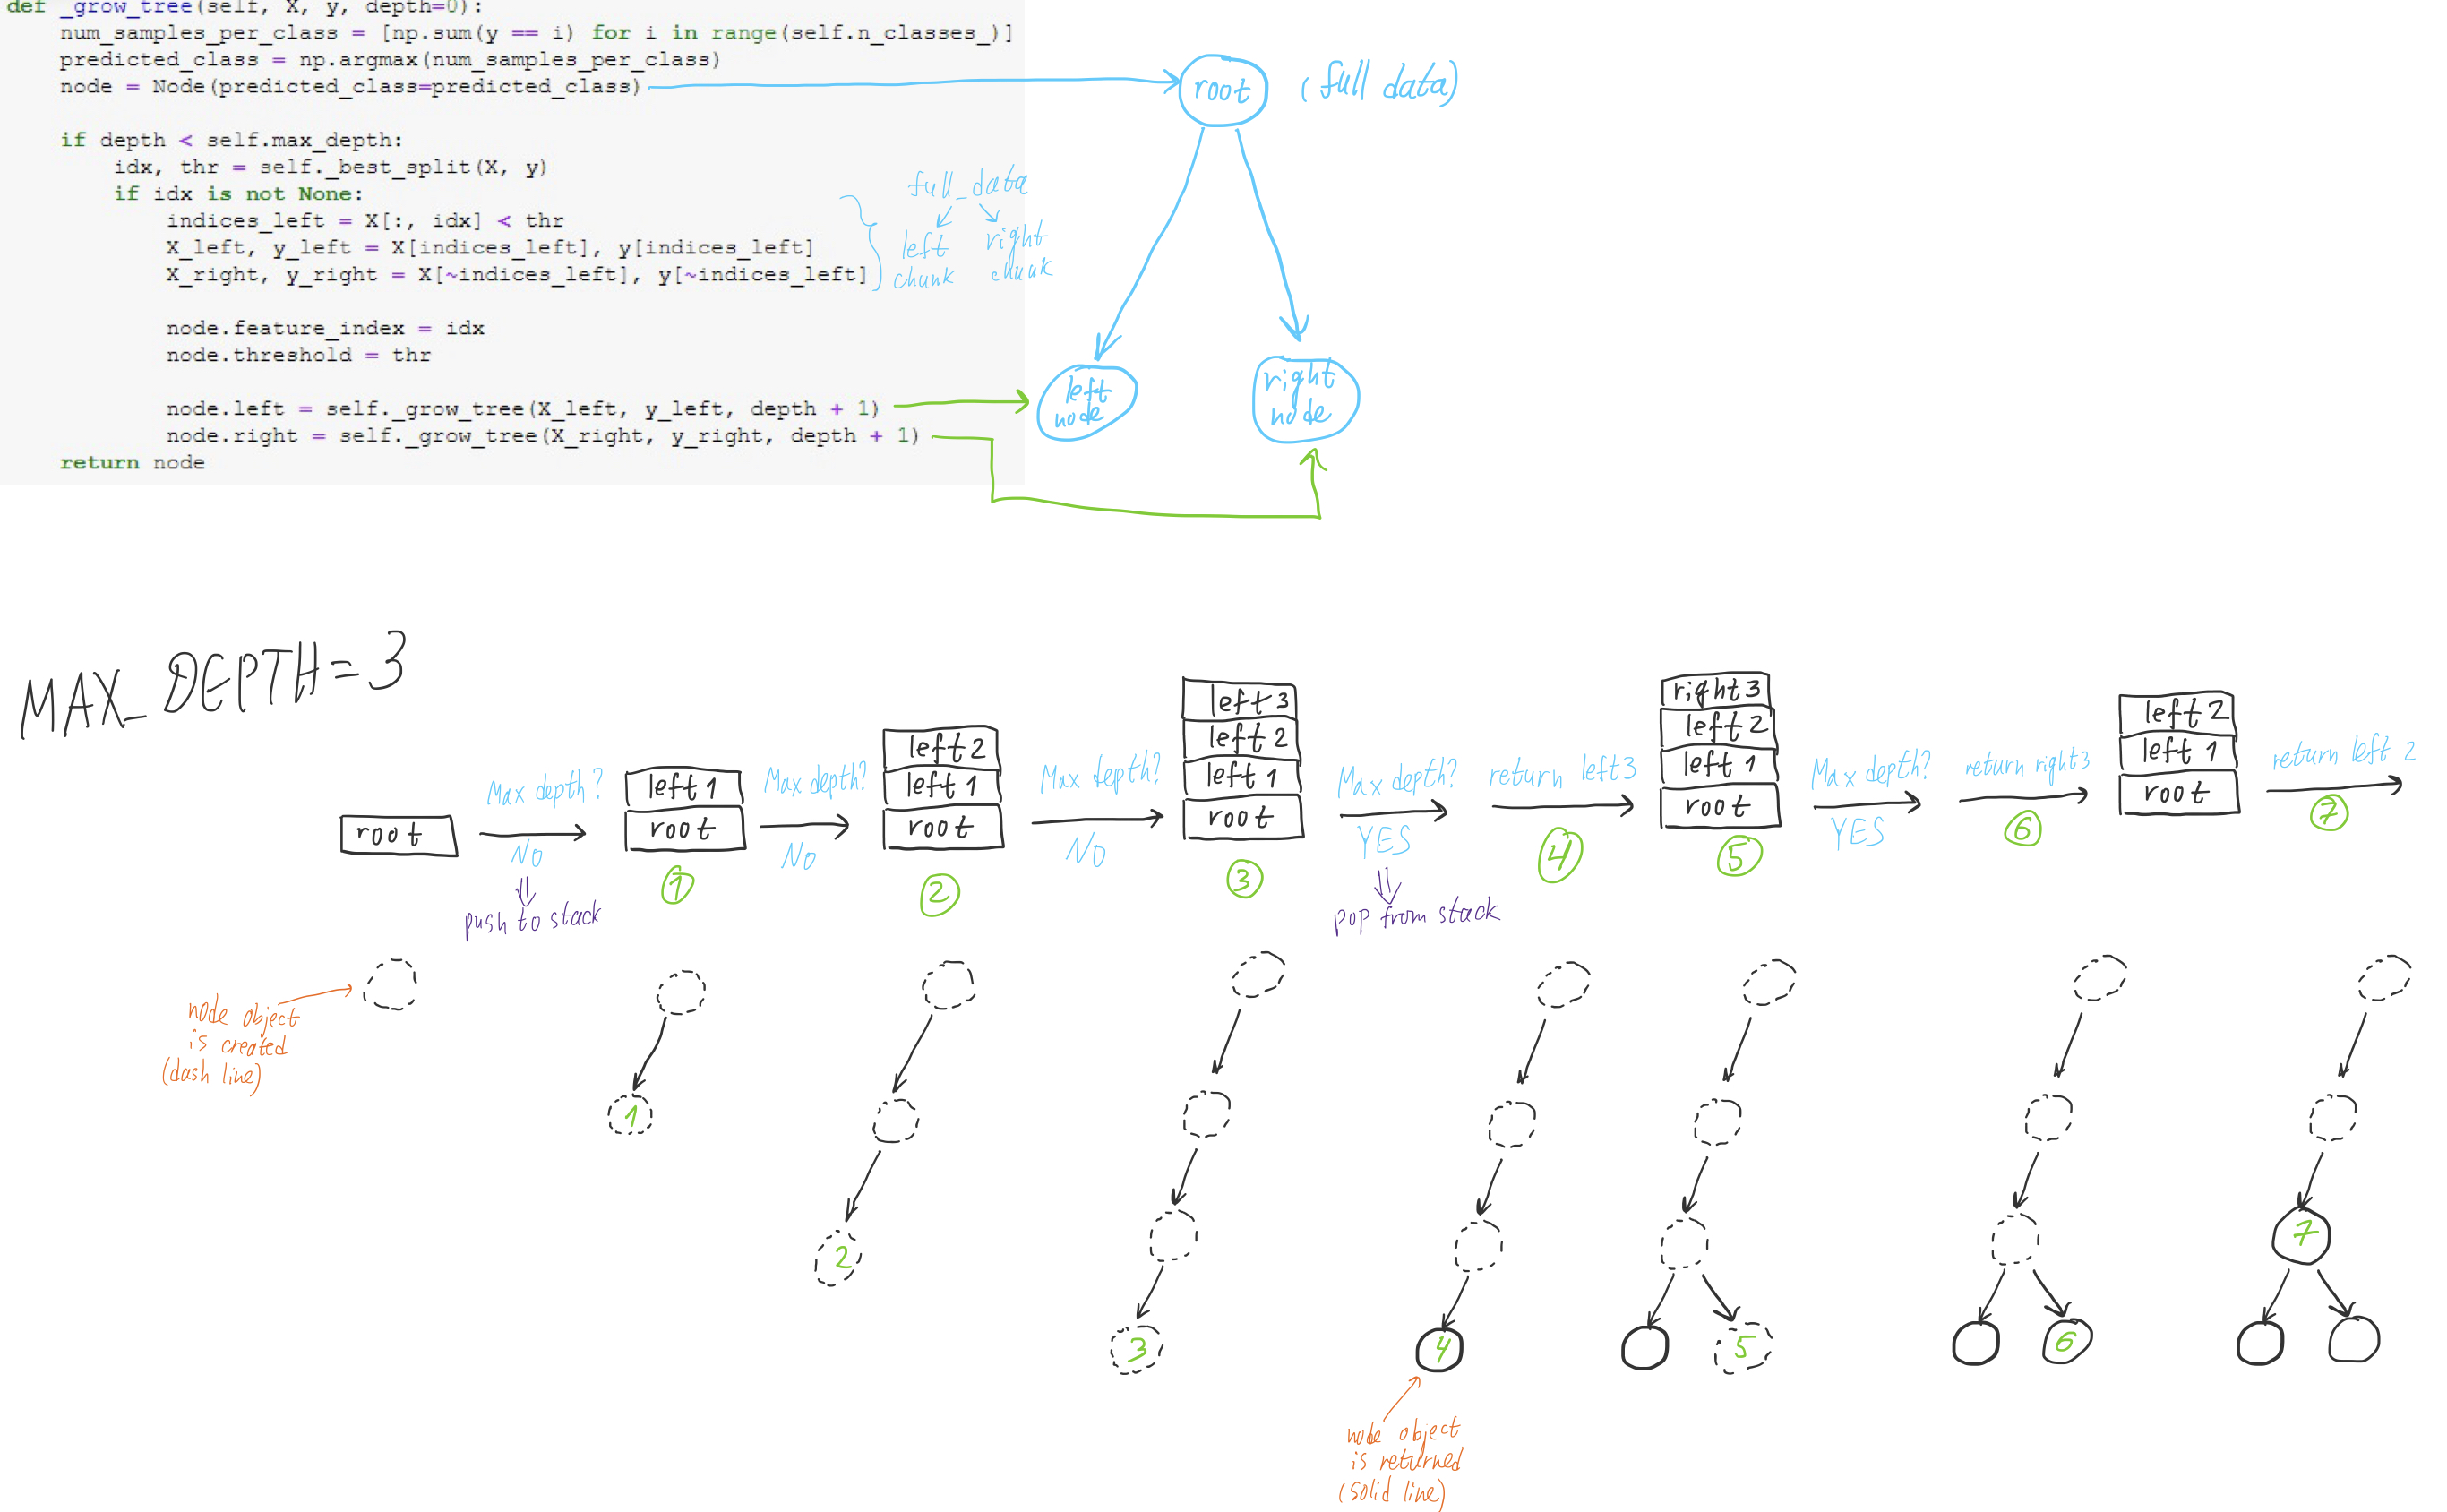 def _grow_tree(self, X, y, depth=0):
    num_samples_per_class = [np.sum(y == i) for i in range(self.n_classes_)]
    predicted_class = np.argmax(num_samples_per_class)
    node = Node(predicted_class=predicted_class)
    if depth < self.max_depth:
        idx, thr = self._best_split(X, y)
        if idx is not None:
            indices_left = X[:, idx] < thr
            X_left, y_left = X[indices_left], y[indices_left]
            X_right, y_right = X[~indices_left], y[~indices_left]
            node.feature_index = idx
            node.threshold = thr
            node.left = self._grow_tree(X_left, y_left, depth + 1)
            node.right = self._grow_tree(X_right, y_right, depth + 1)
    return node
full_data
left
chunk
right
chunk
root
(full data)
left
node
right
node
MAX_DEPTH=3
root
Max depth?
NO
push to stack
left 1
root
1
Max depth?
NO
left 2
left 1
root
2
Max depth?
NO
left 3
left 2
left 1
root
3
Max depth?
YES
pop from stack
return left3
4
right 3
left 2
left 1
root
5
Max depth?
YES
return right3
6
left 2
left 1
root
return left 2
7
node object
is created
(dash line)
1
2
3
4
5
6
7
node object
is returned
(solid line)